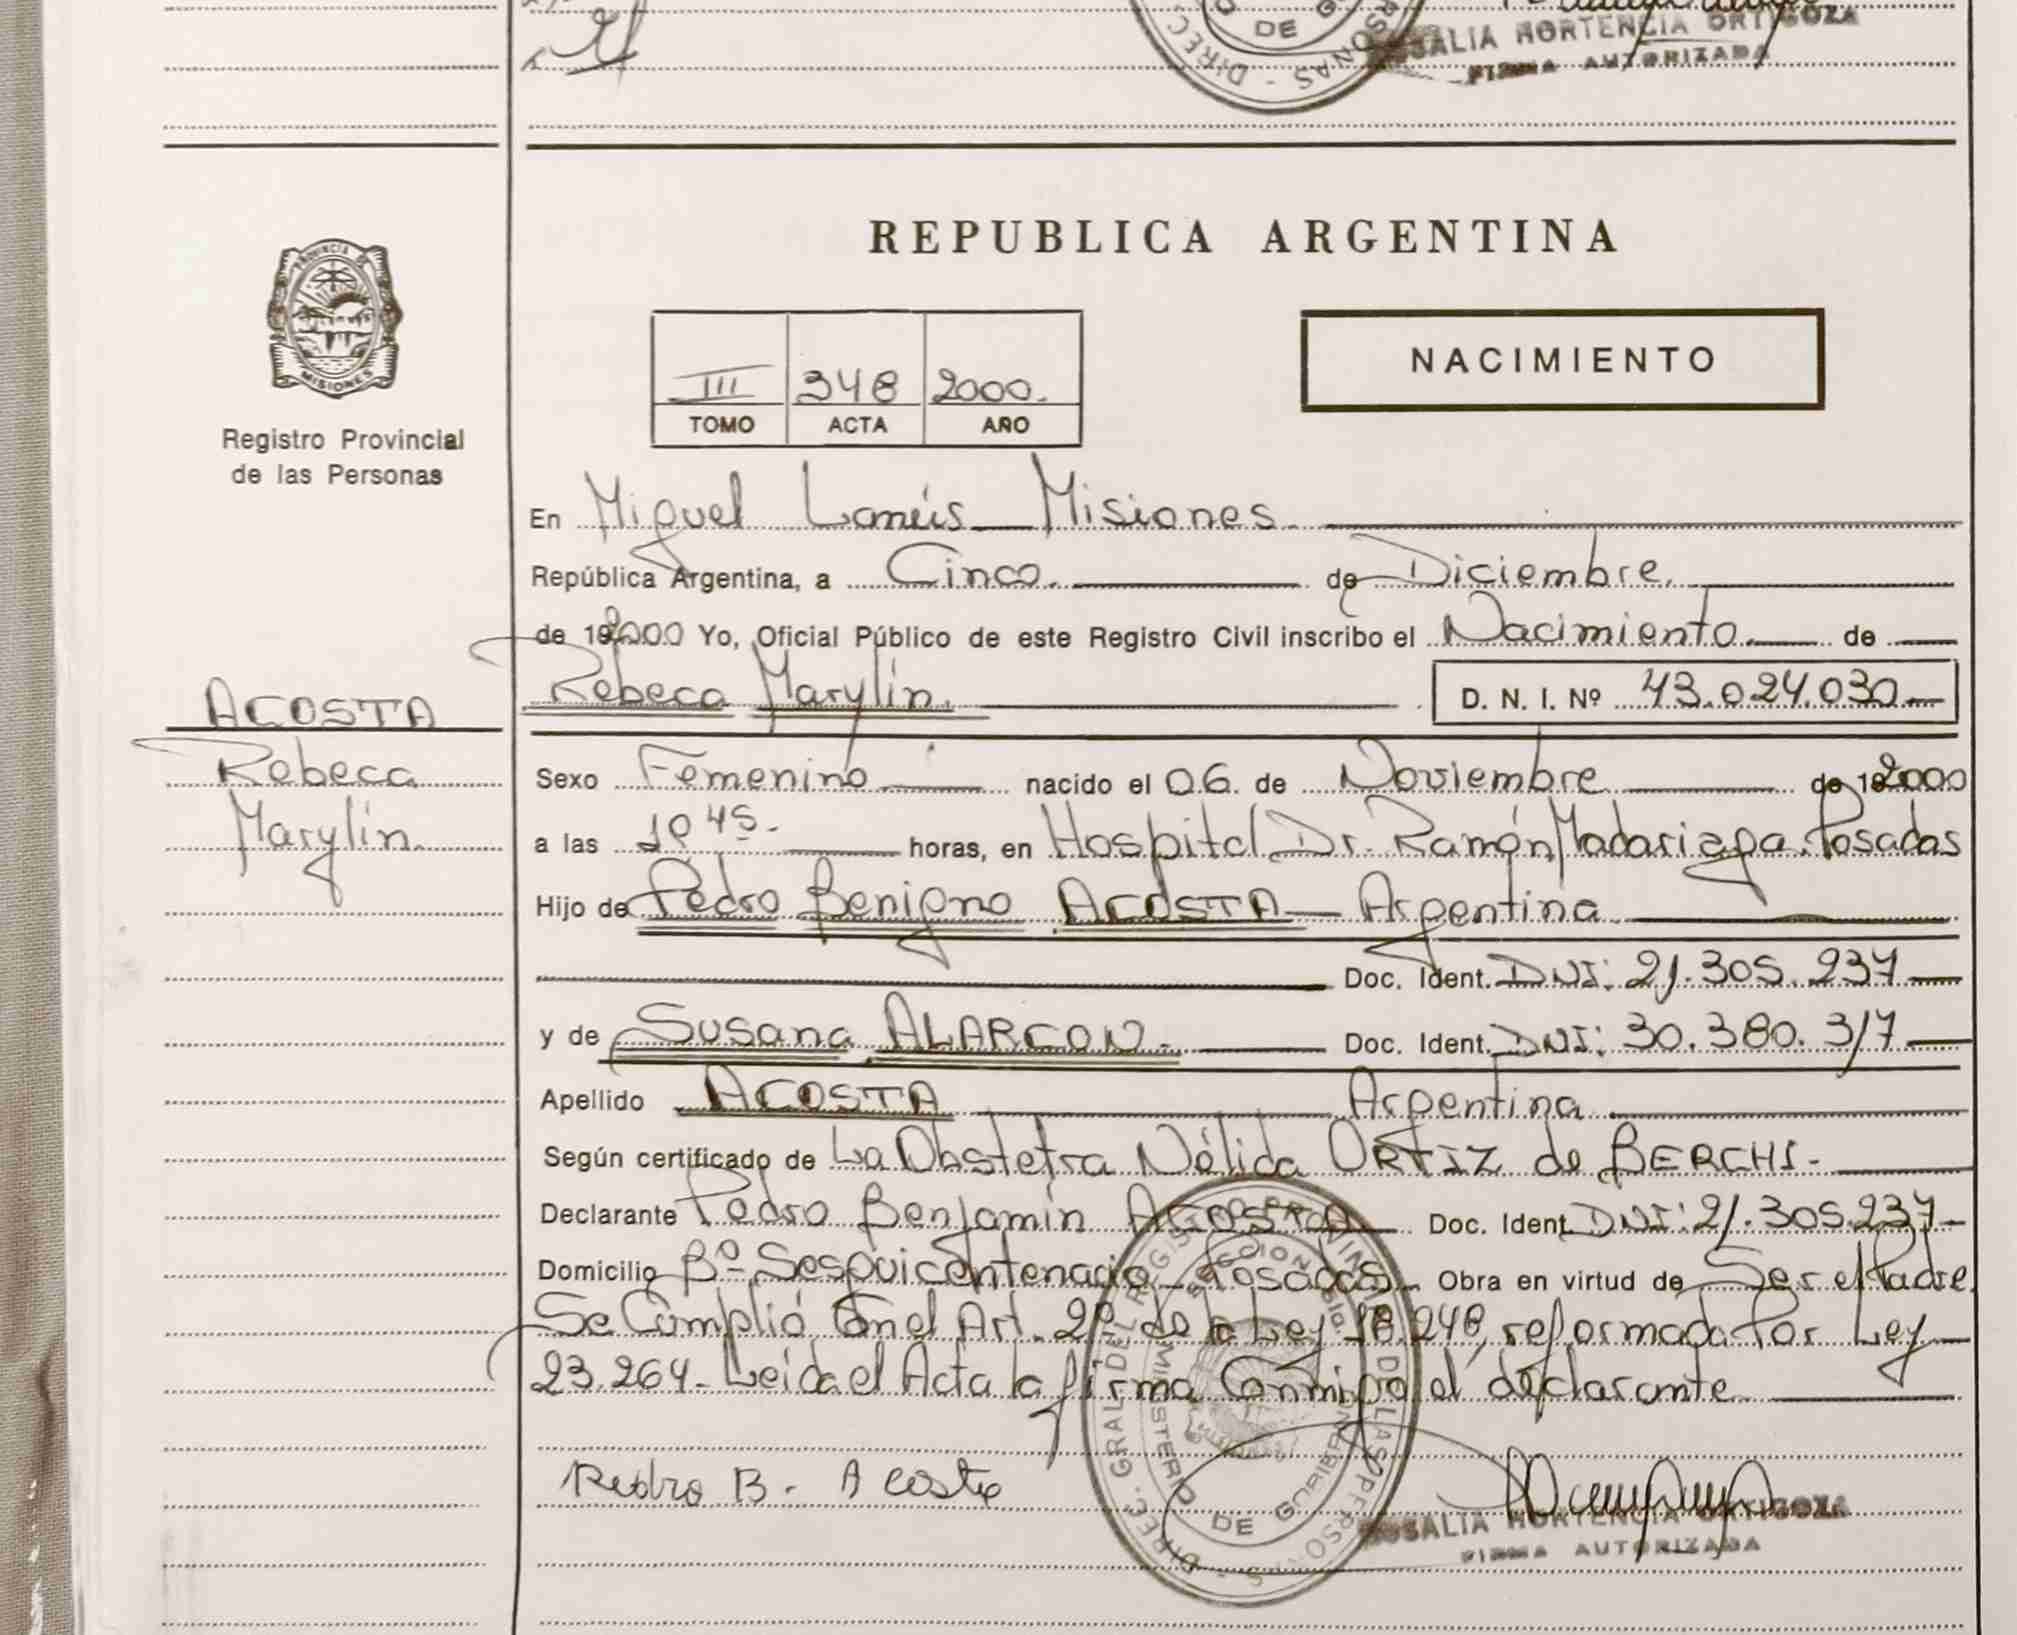 DE
ROSALIA HORTENCIA ORTIGOZA
FIRMA AUTORIZADA
PROVINCIA DE
MISIONES
Registro Provincial
de las Personas
REPUBLICA ARGENTINA
NACIMIENTO
III 348 2000.
TOMO ACTA AÑO
En Miguel Lanús Misiones
República Argentina, a Cinco. de Diciembre.
de 192000 Yo, Oficial Público de este Registro Civil inscribo el Nacimiento de
Rebeca Marylín. D. N. I. Nº 43.024.030
ACOSTA
Rebeca
Marylín.
Sexo Femenino nacido el 06. de Noviembre de 192000
a las horas, en Hospital Dr. Ramón Madariaga. Posadas
Hijo de Pedro Benigno ACOSTA Argentina
Doc. Ident. DNI: 21.305.237
y de Susana ALARCON. Doc. Ident. DNI: 30.380.317
Apellido ACOSTA Argentina
Según certificado de La Obstetra Nélida ORTIZ de BERCHI.
Declarante Pedro Benjamín ACOSTA Doc. Ident. DNI: 21.305.237
Domicilio Bº Sesquicentenario Posadas Obra en virtud de Ser el Padre
Se Cumplió Con el Art. 2º de la Ley 18.248, reformada Por Ley
23.264. Leída el Acta la firma Conmigo el declarante
Pedro B. Acosta
DIREC. GRAL. DEL REGISTRO PROVINCIAL DE LAS PERSONAS
MINISTERIO DE GOBIERNO
ROSALIA HORTENCIA ORTIGOZA
FIRMA AUTORIZADA